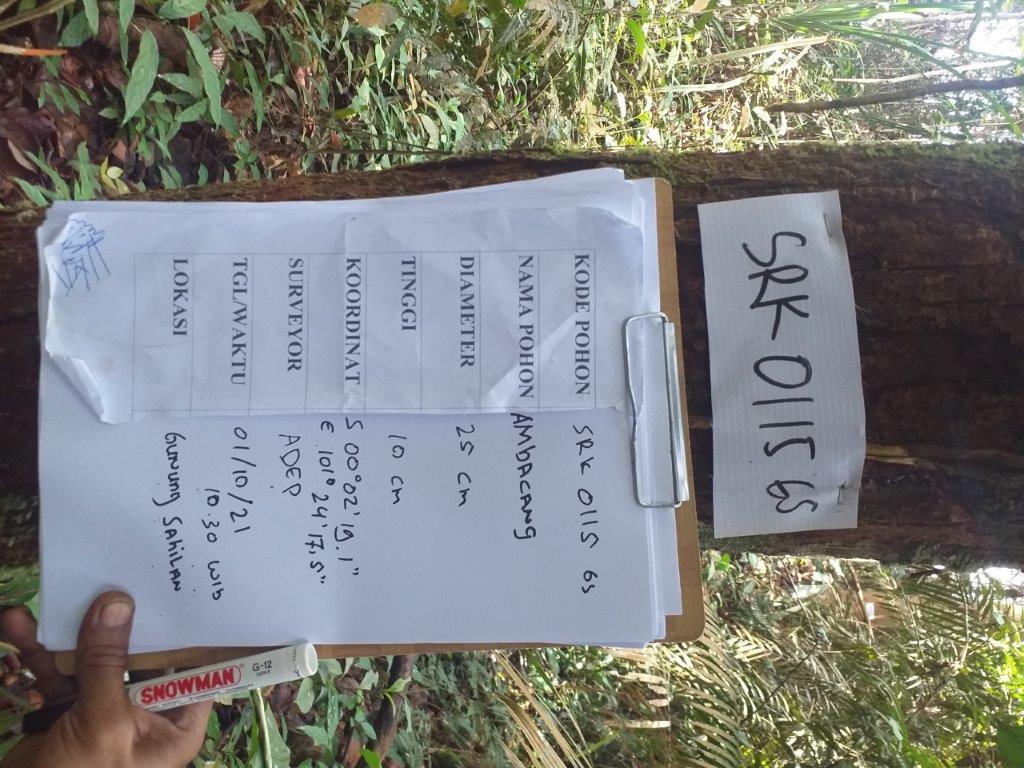 SRK 0115 GS
KODE POHON SRK 0115 GS
NAMA POHON AMbACANG
DIAMETER 25 cm
TINGGI 10 cm
KOORDINAT S 00°02'19.1"
E. 101° 24'17,5"
SURVEYOR ADEP
TGL/WAKTU 01/10/21
10.30 WIb
LOKASI GUNUNG SAHILAN
SNOWMAN
G-12